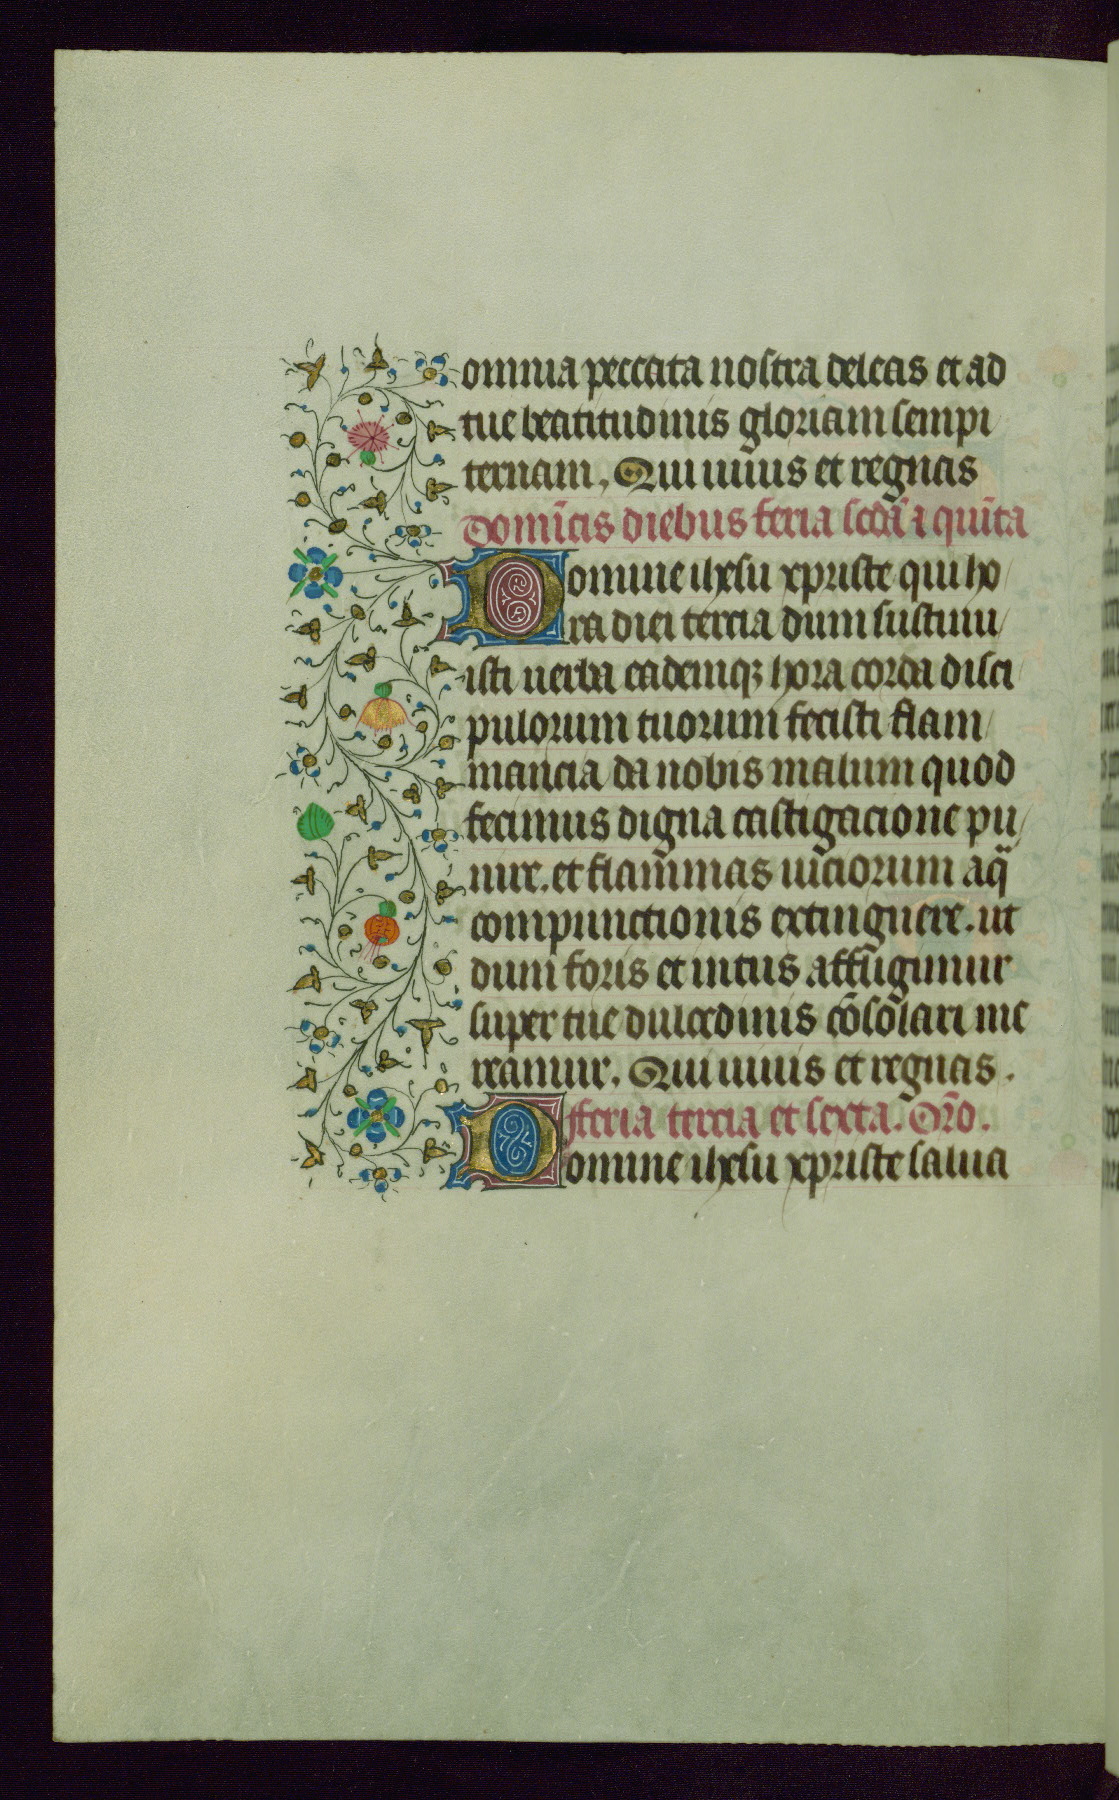 omnia peccata nostra deleas et ad
tue beatitudinis gloriam sempi
ternam. Qui uiuis et regnas
Domīcis diebus feria scd̄a ⁊ quīta
Domine ihesu xpriste qui ho
ra diei tercia dum sustinu
isti uerba eademqꝫ hora corda disci
pulorum tuorum fecisti flam
mancia da nobis malum quod
fecimus digna castigacione pu
nire. et flam̄mas uiciorum aq̄
compunctionis extinguere. ut
dum foris et intus affligimur
super tue dulcedinis cōsolari me
reamur. Qui uiuis et regnas.
fferia tercia et sexta. Or̄o.
Domine ihesu xpriste salua